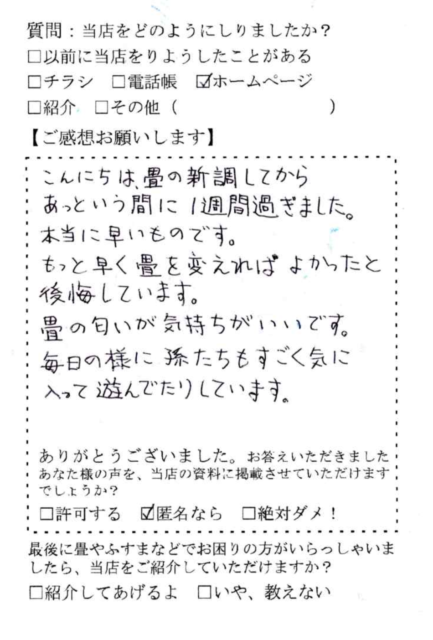 質問：当店をどのようにしりましたか？
□以前に当店をりようしたことがある
□チラシ □電話帳 ☑ホームページ
□紹介 □その他（ ）
【ご感想お願いします】
こんにちは、畳の新調してから
あっという間に1週間過ぎました。
本当に早いものです。
もっと早く畳を変えればよかったと
後悔しています。
畳の匂いが気持ちがいいです。
毎日の様に孫たちもすごく気に
入って遊んでたりしています。
ありがとうございました。お答えいただきました
あなた様の声を、当店の資料に掲載させていただけます
でしょうか？
□許可する ☑匿名なら □絶対ダメ！
最後に畳やふすまなどでお困りの方がいらっしゃいま
したら、当店をご紹介していただけますか？
□紹介してあげるよ □いや、教えない